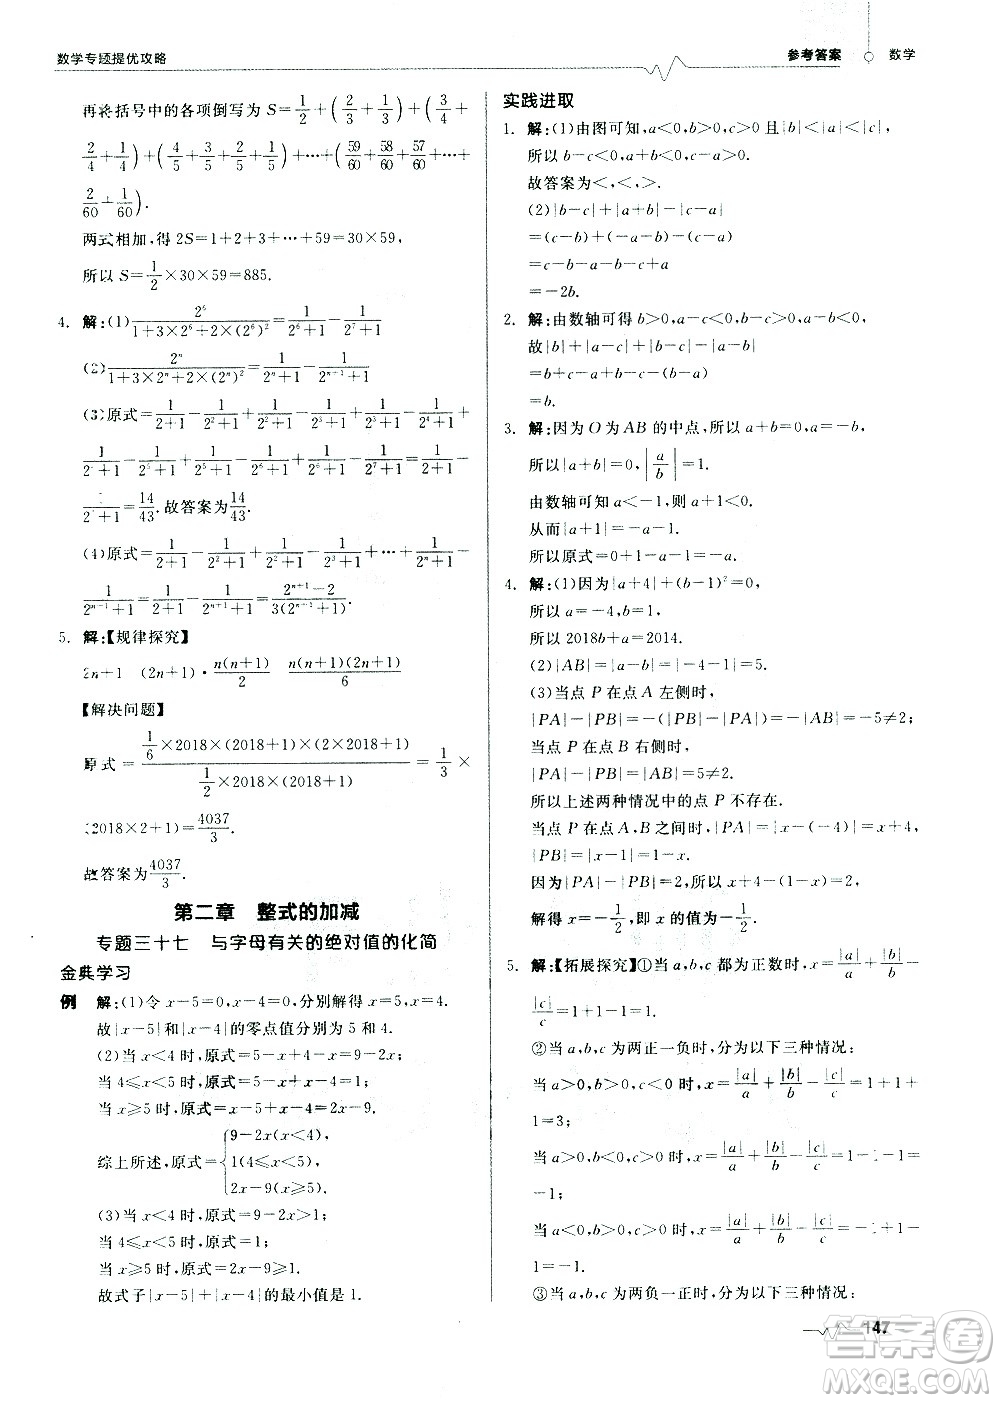 数学专题提优攻略
参考答案 数学
再将括号中的各项倒写为 S=1/2+(2/3+1/3)+(3/4+
2/4+1/4)+(4/5+3/5+2/5+1/5)+…+(59/60+58/60+57/60+…+
2/60+1/60).
两式相加,得 2S=1+2+3+…+59=30×59,
所以 S=1/2×30×59=885.
4. 解:(1) 2⁶/(1+3×2⁶+2×(2⁶)²)=1/(2⁶+1)-1/(2⁷+1)
(2) 2ⁿ/(1+3×2ⁿ+2×(2ⁿ)²)=1/(2ⁿ+1)-1/(2ⁿ⁺¹+1)
(3)原式=1/(2+1)-1/(2²+1)+1/(2²+1)-1/(2³+1)+1/(2³+1)-1/(2⁴+1)+
1/(2⁴+1)-1/(2⁵+1)+1/(2⁵+1)-1/(2⁶+1)+1/(2⁶+1)-1/(2⁷+1)=1/(2+1)-
=14/43.故答案为14/43.
(4)原式=1/(2+1)-1/(2²+1)+1/(2²+1)-1/(2³+1)+…+1/(2ⁿ+1)-
1/(2ⁿ⁺¹+1)=1/(2+1)-1/(2ⁿ⁺¹+1)=(2ⁿ⁺¹-2)/(3(2ⁿ⁺¹+1))
5. 解:【规律探究】
2n+1 (2n+1)·n(n+1)/2 n(n+1)(2n+1)/6
【解决问题】
原式=(1/6×2018×(2018+1)×(2×2018+1))/(1/2×2018×(2018+1))=1/3×
(2018×2+1)=4037/3.
故答案为4037/3.
第二章 整式的加减
专题三十七 与字母有关的绝对值的化简
金典学习
例 解:(1)令 x-5=0,x-4=0,分别解得 x=5,x=4.
故|x-5|和|x-4|的零点值分别为 5 和 4.
(2)当 x<4 时,原式=5-x+4-x=9-2x;
当 4≤x<5 时,原式=5-x+x-4=1;
当 x≥5 时,原式=x-5+x-4=2x-9.
综上所述,原式={9-2x(x<4),
1(4≤x<5),
2x-9(x≥5).
(3)当 x<4 时,原式=9-2x>1;
当 4≤x<5 时,原式=1;
当 x≥5 时,原式=2x-9≥1.
故式子|x-5|+|x-4|的最小值是 1.
实践进取
1. 解:(1)由图可知,a<0,b>0,c>0 且|b|<|a|<|c|,
所以 b-c<0,a+b<0,c-a>0.
故答案为<,<,>.
(2)|b-c|+|a+b|-|c-a|
=(c-b)+(-a-b)-(c-a)
=c-b-a-b-c+a
=-2b.
2. 解:由数轴可得 b>0,a-c<0,b-c>0,a-b<0,
故|b|+|a-c|+|b-c|-|a-b|
=b+c-a+b-c-b+a
=b.
3. 解:因为 O 为 AB 的中点,所以 a+b=0,a=-b,
所以|a+b|=0,|a/b|=1.
由数轴可知 a<-1,则 a+1<0.
从而|a+1|=-a-1.
所以原式=0+1-a-1=-a.
4. 解:(1)因为|a+4|+(b-1)²=0,
所以 a=-4,b=1.
所以 2018b+a=2014.
(2)|AB|=|a-b|=|-4-1|=5.
(3)当点 P 在点 A 左侧时,
|PA|-|PB|=-(|PB|-|PA|)=-|AB|=-5≠2;
当点 P 在点 B 右侧时,
|PA|-|PB|=|AB|=5≠2.
所以上述两种情况中的点 P 不存在.
当点 P 在点 A,B 之间时,|PA|=|x-(-4)|=x+4,
|PB|=|x-1|=1-x.
因为|PA|-|PB|=2,所以 x+4-(1-x)=2,
解得 x=-1/2,即 x 的值为-1/2.
5. 解:【拓展探究】①当 a,b,c 都为正数时,x=|a|/a+|b|/b+
|c|/c=1+1+1=3.
②当 a,b,c 为两正一负时,分为以下三种情况:
当 a>0,b>0,c<0 时,x=|a|/a+|b|/b+|c|/c=1+1-
1=3;
当 a>0,b<0,c>0 时,x=|a|/a+|b|/b+|c|/c=1-
1=1;
当 a<0,b>0,c>0 时,x=|a|/a+|b|/b+|c|/c=
1+1=1.
③当 a,b,c 为两负一正时,分为以下三种情况:
147
答案卷
MXQE.COM